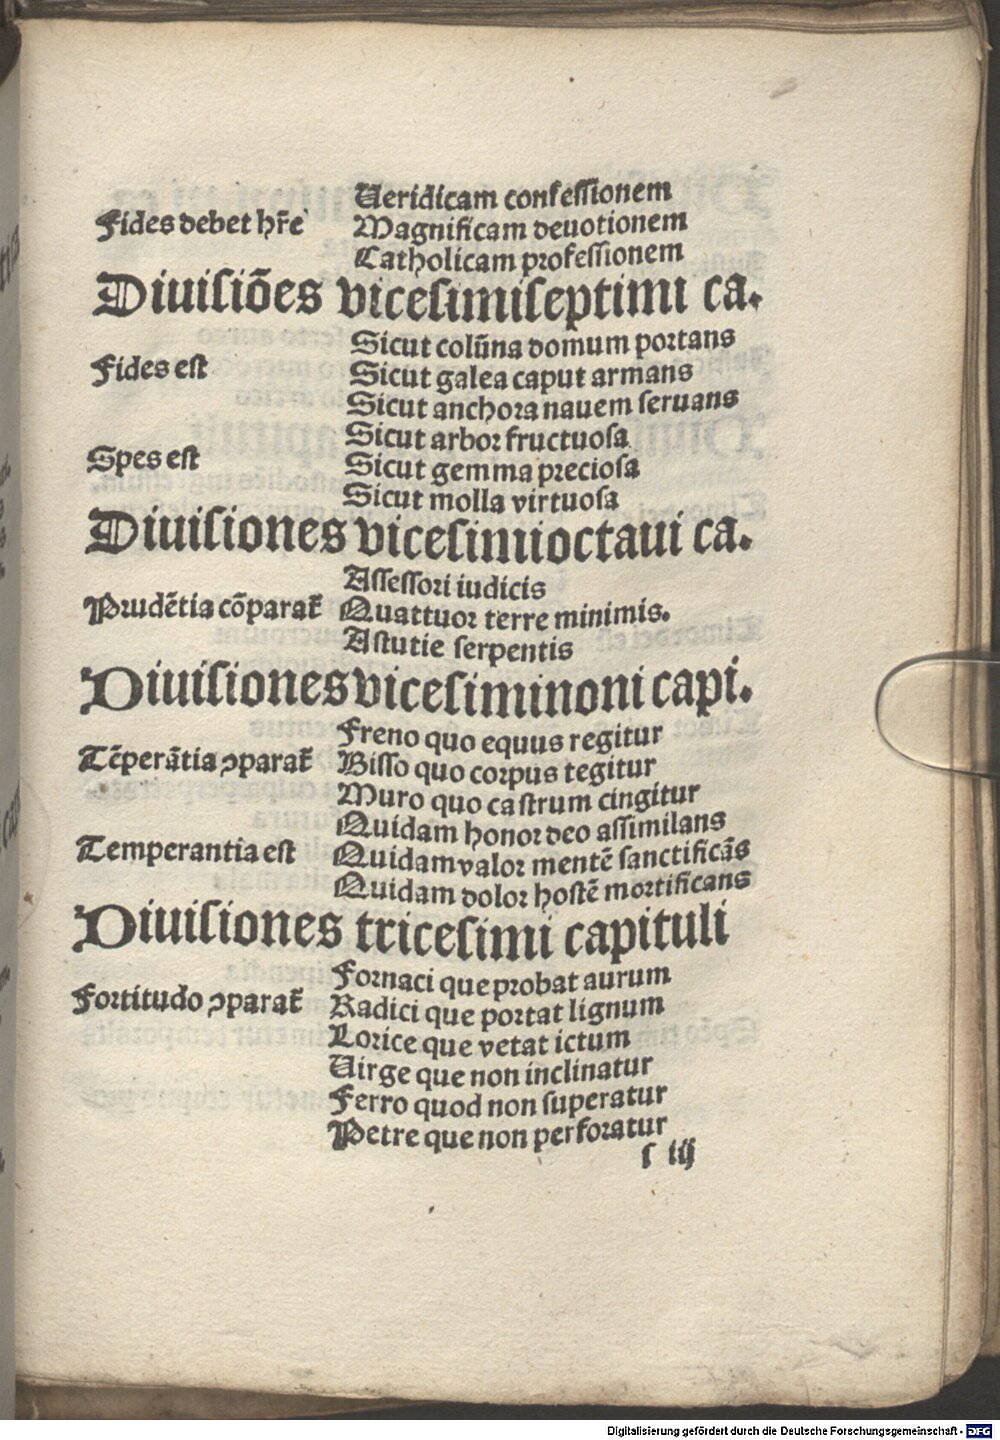 Ueridicam confessionem
Fides debet hr̄e Magnificam deuotionem
Catholicam professionem
Diuisiōes vicesimiseptimi ca.
Sicut colūna domum portans
Fides est Sicut galea caput armans
Sicut anchora nauem seruans
Sicut arbor fructuosa
Spes est Sicut gemma preciosa
Sicut molla virtuosa
Diuisiones vicesimioctaui ca.
Assessori iudicis
Prudētia cōparat̄ Quattuor terre minimis.
Astutie serpentis
Diuisiones vicesiminoni capi.
Freno quo equus regitur
Tēperātia ꝯparat̄ Bisso quo corpus tegitur
Muro quo castrum cingitur
Quidam honor deo assimilans
Temperantia est Quidam valor mentē sanctificās
Quidam dolor hostē mortificans
Diuisiones tricesimi capituli
Fornaci que probat aurum
Fortitudo ꝯparat̄ Radici que portat lignum
Lorice que vetat ictum
Uirge que non inclinatur
Ferro quod non superatur
Petre que non perforatur
s iij
Digitalisierung gefördert durch die Deutsche Forschungsgemeinschaft - DFG